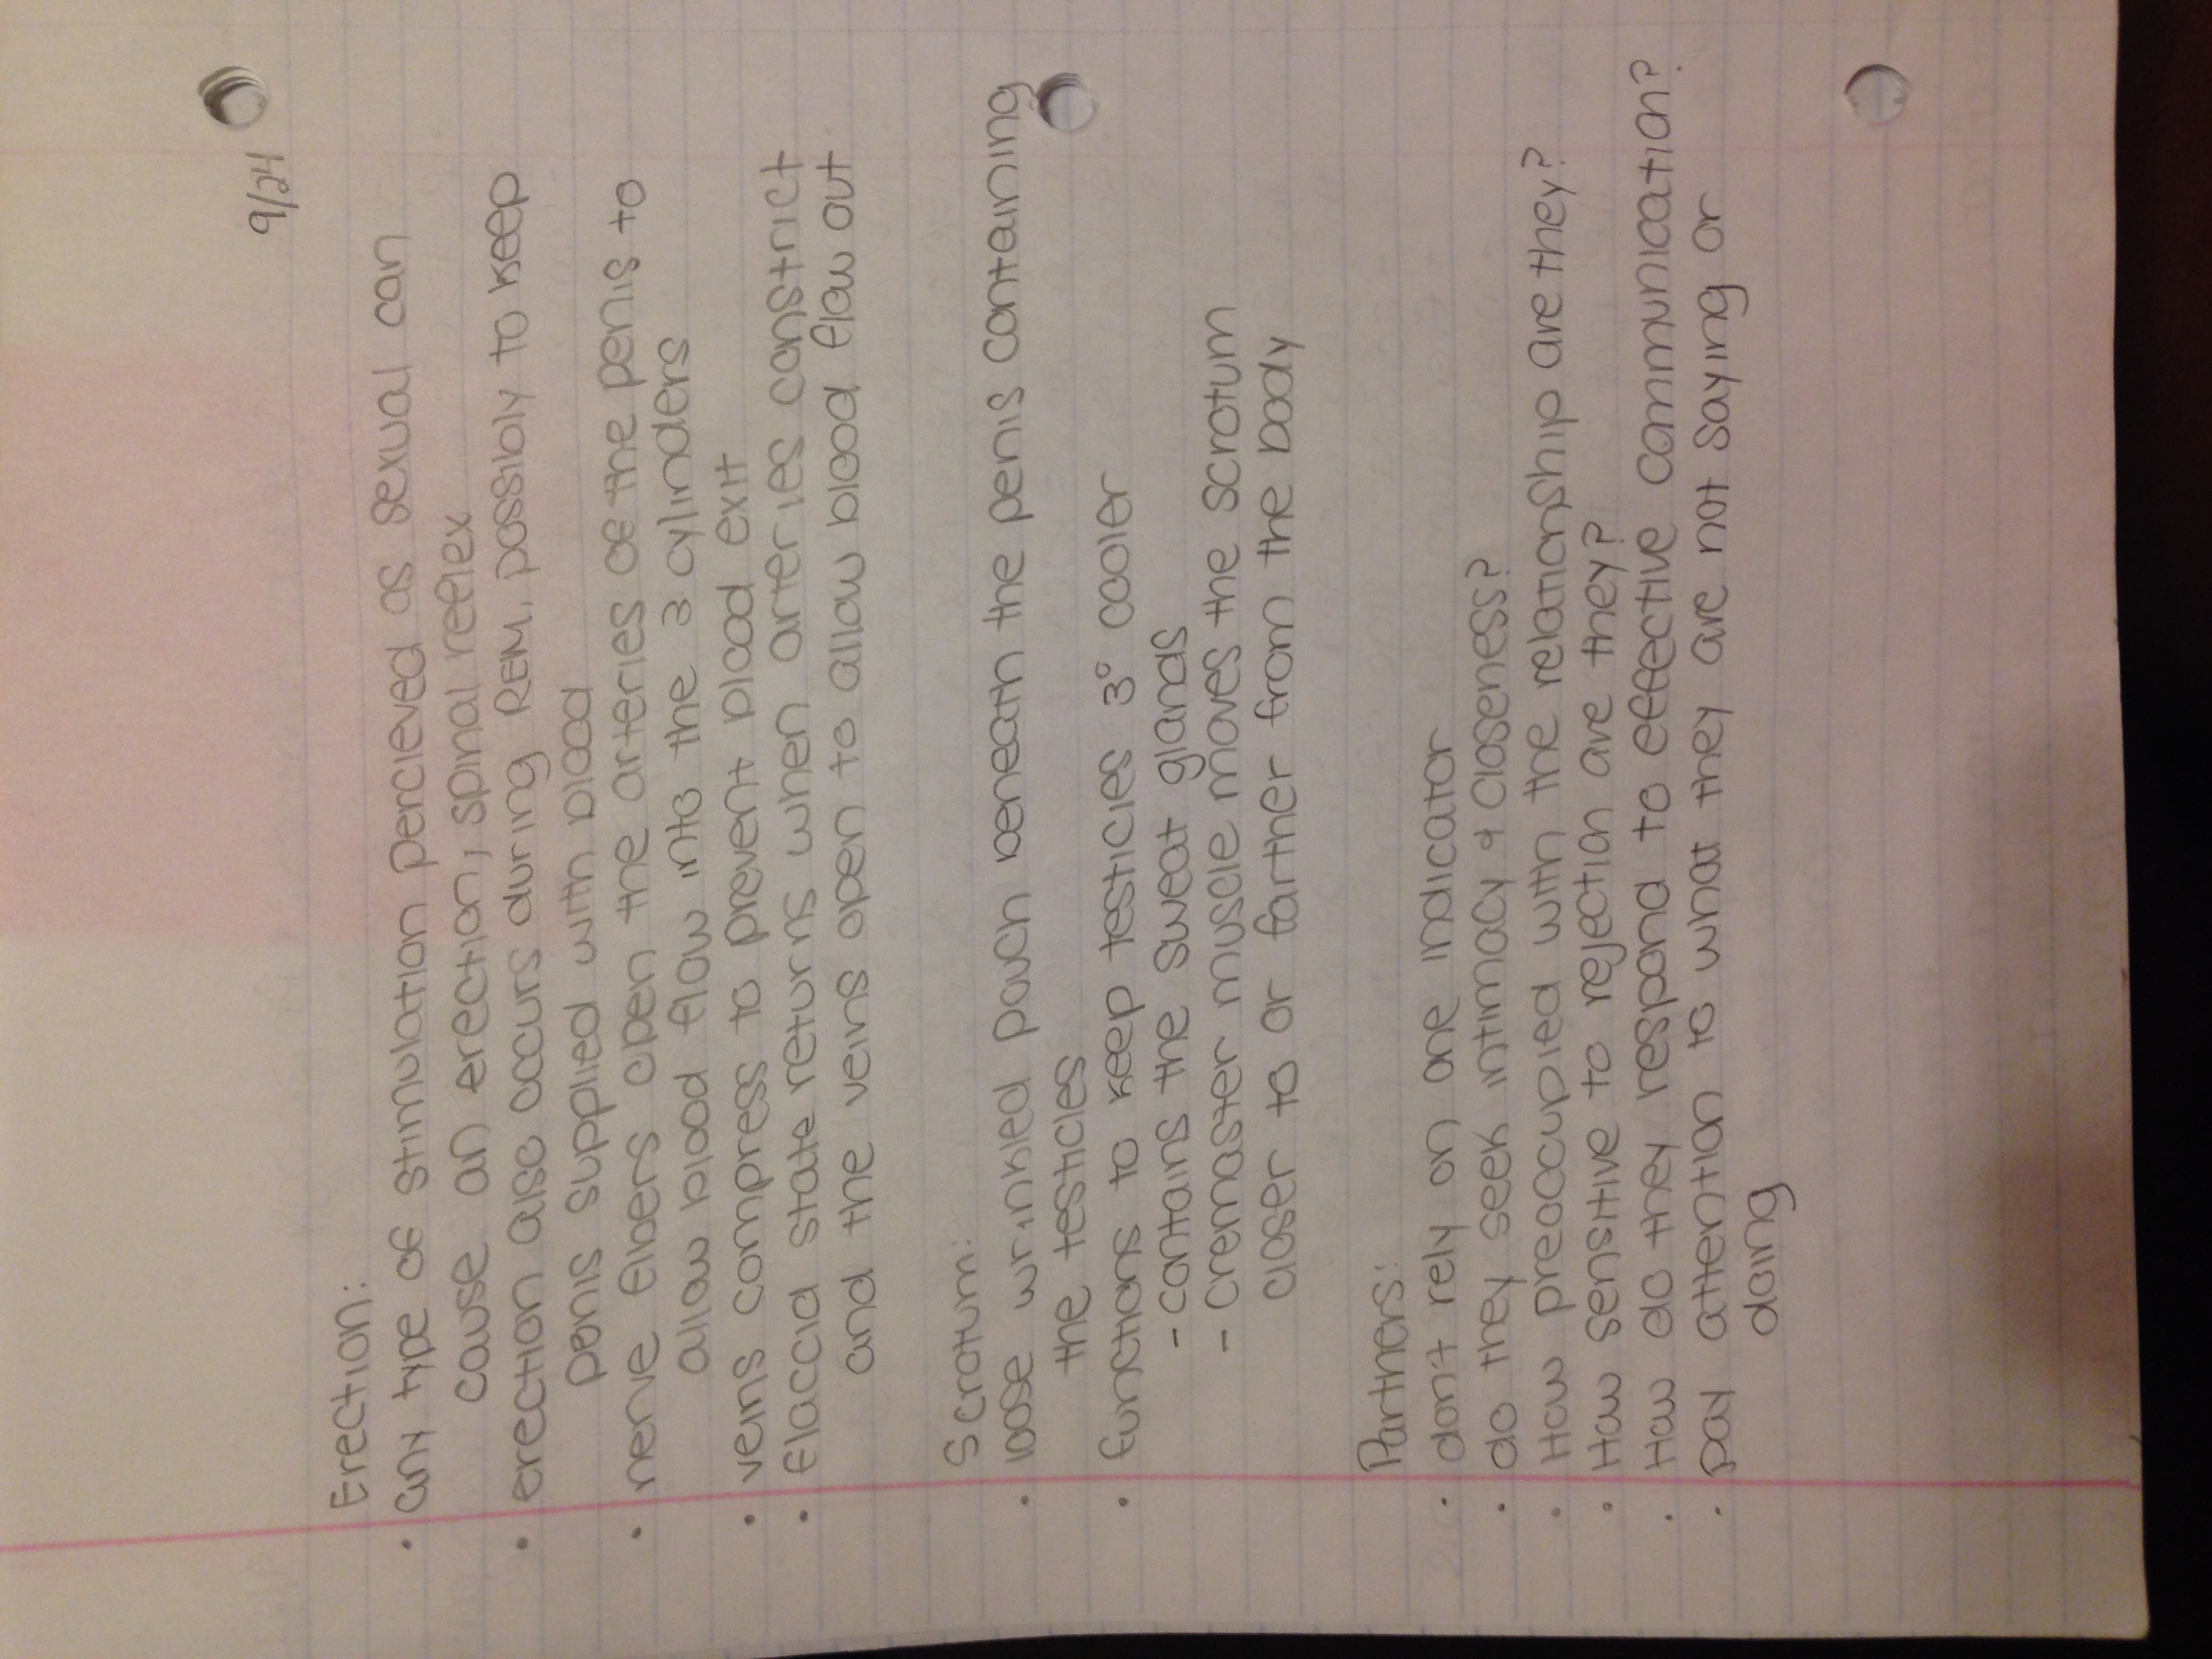 9/24
Erection:
• any type of stimulation percieved as sexual can
cause an erection, spinal reflex
• erection also occurs during REM, possibly to keep
penis supplied with blood
• nerve fibers open the arteries of the penis to
allow blood flow into the 3 cylinders
• veins compress to prevent blood exit
• flaccid state returns when arteries constrict
and the veins open to allow blood flow out
Scrotum:
• loose wrinkled pouch beneath the penis containing
the testicles
• functions to keep testicles 3° cooler
- contains the sweat glands
- cremaster muscle moves the scrotum
closer to or farther from the body
Partners:
• don't rely on one indicator
• do they seek intimacy & closeness?
• How preoccupied with the relationship are they?
• How sensitive to rejection are they?
• How do they respond to effective communication?
• pay attention to what they are not saying or
doing